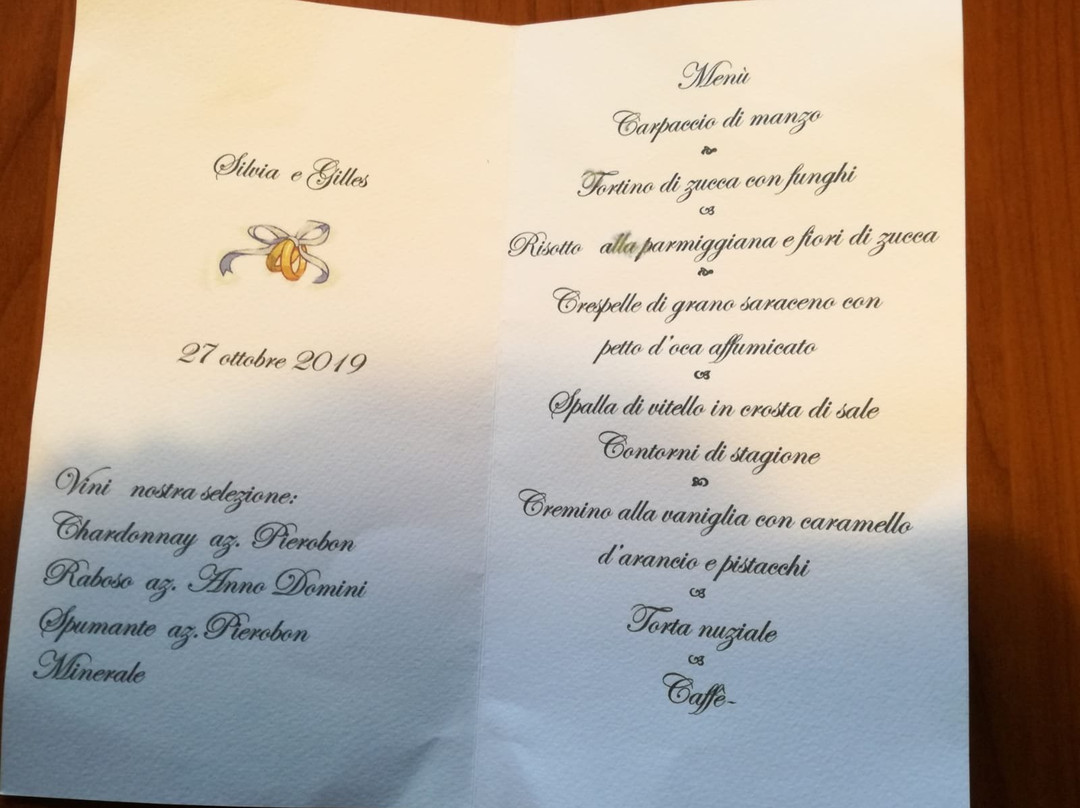 Silvia e Gilles
27 ottobre 2019
Vini nostra selezione:
Chardonnay az. Pierobon
Raboso az. Anno Domini
Spumante az. Pierobon
Minerale
Menù
Carpaccio di manzo
Tortino di zucca con funghi
Risotto alla parmiggiana e fiori di zucca
Crespelle di grano saraceno con
petto d'oca affumicato
Spalla di vitello in crosta di sale
Contorni di stagione
Cremino alla vaniglia con caramello
d'arancio e pistacchi
Torta nuziale
Caffè-